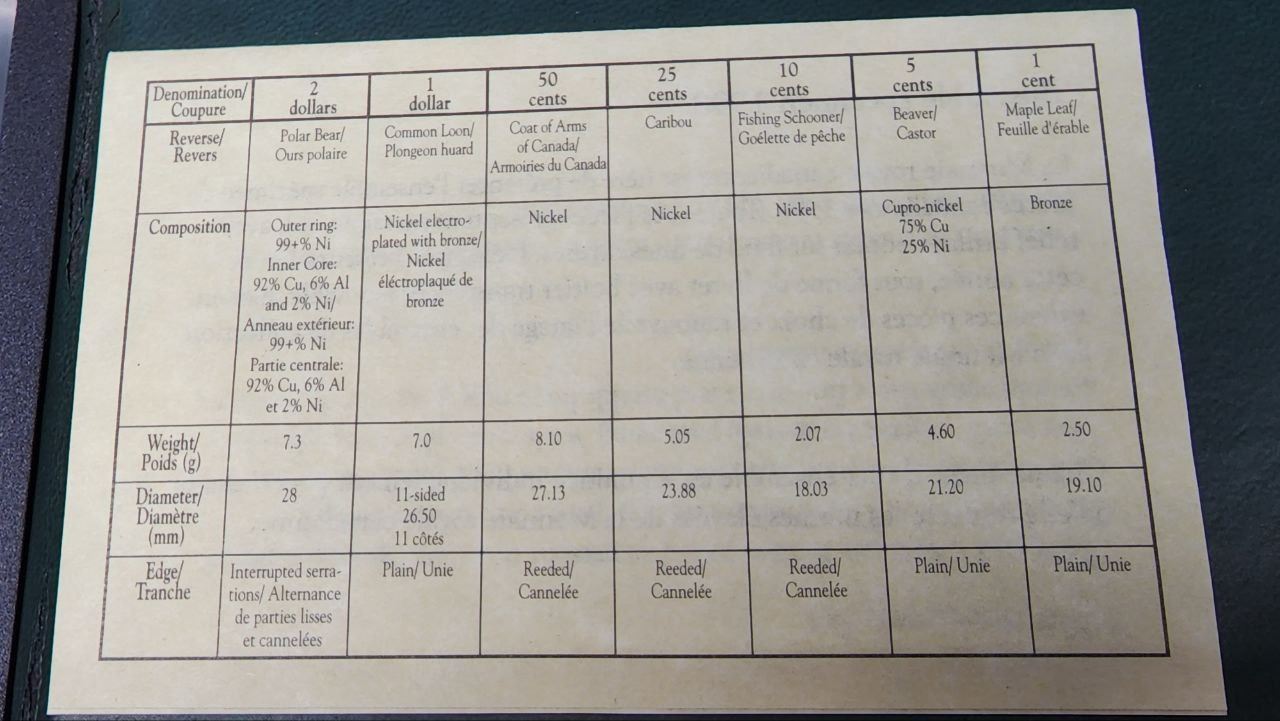 Denomination/
Coupure
2
dollars
1
dollar
50
cents
25
cents
10
cents
5
cents
1
cent
Reverse/
Revers
Polar Bear/
Ours polaire
Common Loon/
Plongeon huard
Coat of Arms
of Canada/
Armoiries du Canada
Caribou
Fishing Schooner/
Goélette de pêche
Beaver/
Castor
Maple Leaf/
Feuille d'érable
Composition
Outer ring:
99+% Ni
Inner Core:
92% Cu, 6% Al
and 2% Ni/
Anneau extérieur:
99+% Ni
Partie centrale:
92% Cu, 6% Al
et 2% Ni
Nickel electro-
plated with bronze/
Nickel
éléctroplaqué de
bronze
Nickel
Nickel
Nickel
Cupro-nickel
75% Cu
25% Ni
Bronze
Weight/
Poids (g)
7.3
7.0
8.10
5.05
2.07
4.60
2.50
Diameter/
Diamètre
(mm)
28
11-sided
26.50
11 côtés
27.13
23.88
18.03
21.20
19.10
Edge/
Tranche
Interrupted serra-
tions/ Alternance
de parties lisses
et cannelées
Plain/ Unie
Reeded/
Cannelée
Reeded/
Cannelée
Reeded/
Cannelée
Plain/ Unie
Plain/ Unie